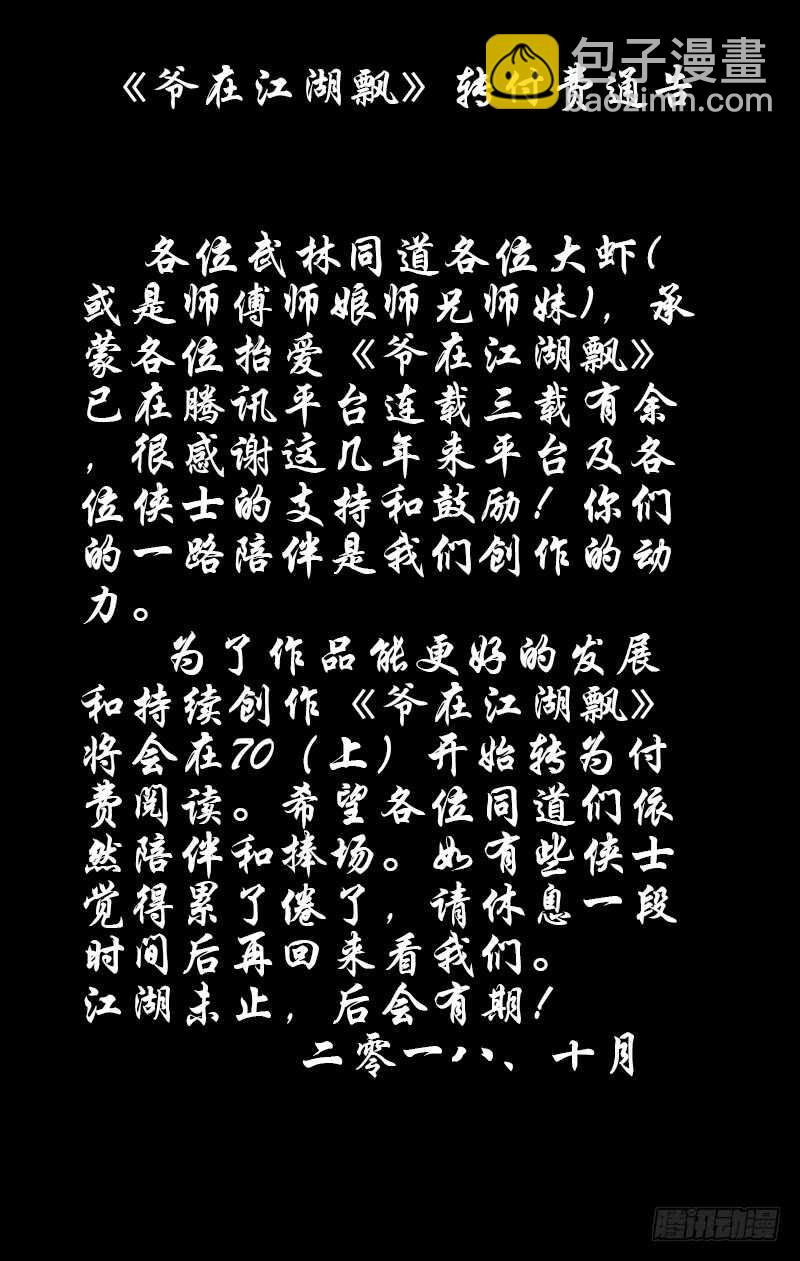 包子漫畫
baozimh.com
《爷在江湖飘》转付费通告
各位武林同道各位大虾(
或是师傅师娘师兄师妹)，承
蒙各位抬爱《爷在江湖飘》
已在腾讯平台连载三载有余
，很感谢这几年来平台及各
位侠士的支持和鼓励！你们
的一路陪伴是我们创作的动
力。
为了作品能更好的发展
和持续创作《爷在江湖飘》
将会在70（上）开始转为付
费阅读。希望各位同道们依
然陪伴和捧场。如有些侠士
觉得累了倦了，请休息一段
时间后再回来看我们。
江湖未止，后会有期！
二零一八、十月
腾讯动漫